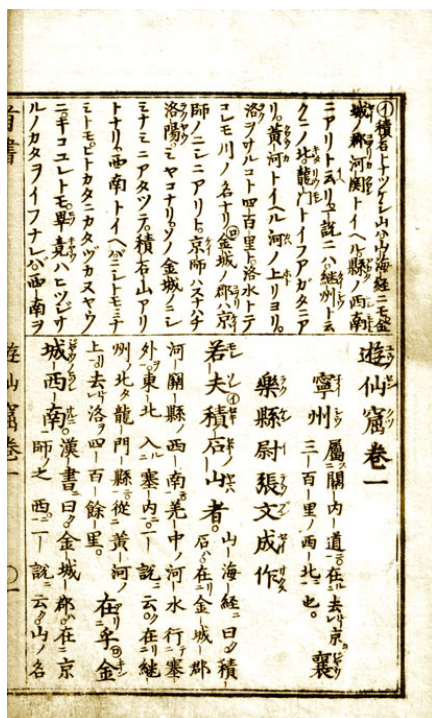 ①積石トナツクル山ハ山海経ニモ金
城ノ郡河関トイヘル縣ノ西南
ニアリト云リ一説ニハ継州ト云
クニノ北龍門トイフアガタニア
リ。黄河トイヘル河ノ上リヨリ
洛ヲサルコト四百里ト洛水トテ
コレモ川ノ名ナリ金城ノ郡ハ京
師ノニシニアリト。京師ハスナハチ
洛陽ミヤコナリ。ソノ金城ノニシ
ミナミニアタツテ。積石山アリ
トナリ。西南トイヘバニシトミナ
ミトモ。ヒトカタニカタヅカヌヤウ
ニ。キコユレトモ。畢竟ハヒツジサ
ルノカタヲイフナレバ西南ヲ
遊仙窟巻一
寧州 屬關内道在去京
三百里ノ西北也。 襄
樂縣尉張文成作
若夫積石山者。 山海経曰積
石在金城郡
河關縣ノ西南羌中ノ河水行塞
外東北入塞内一説云在継
州ノ北龍門縣從黄河ノ
上去洛四百餘里。 在乎金
城西南。 漢書曰金城郡在京
師之西一説云山ノ名
首書 遊仙窟巻一 ○一